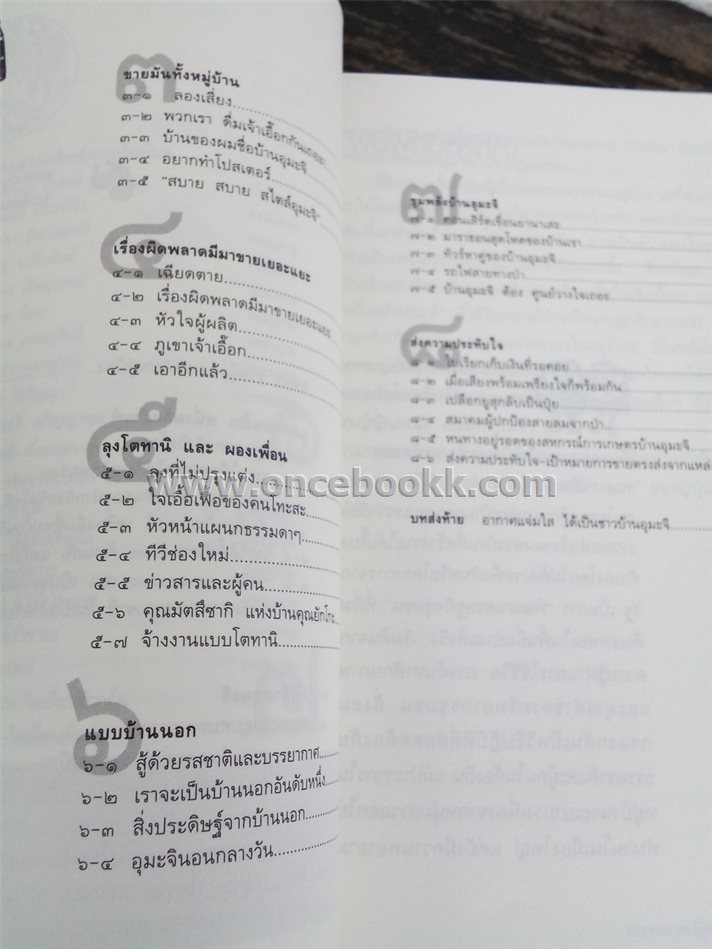 ๓
ขายมันทั้งหมู่บ้าน
๓-๑ ลองเสี่ยง
๓-๒ พวกเรา ดื่มเจ้าเอื๊อกกันเถอะ
๓-๓ บ้านของผมชื่อบ้านอุมะจิ
๓-๔ อยากทำโปสเตอร์
๓-๕ "สบาย สบาย สไตล์อุมะจิ"
๔
เรื่องผิดพลาดมีมาขายเยอะแยะ
๔-๑ เฉียดตาย
๔-๒ เรื่องผิดพลาดมีมาขายเยอะแยะ
๔-๓ หัวใจผู้ผลิต
๔-๔ ภูเขาเจ้าเอื๊อก
๔-๕ เอาอีกแล้ว
๕
ลุงโตทานิ และ ผองเพื่อน
๕-๑ ลุงที่ไม่ปรุงแต่ง
๕-๒ ใจเอื้อเฟื้อของคนโทะสะ
๕-๓ หัวหน้าแผนกธรรมดาๆ
๕-๔ ทีวีช่องใหม่
๕-๕ ข่าวสารและผู้คน
๕-๖ คุณมัตสึซากิ แห่งบ้านคุณยักโกะ
๕-๗ จ้างงานแบบโตทานิ
๖
แบบบ้านนอก
๖-๑ สู้ด้วยรสชาติและบรรยากาศ
๖-๒ เราจะเป็นบ้านนอกอันดับหนึ่ง
๖-๓ สิ่งประดิษฐ์จากบ้านนอก
๖-๔ อุมะจินอนกลางวัน
๗
ขุมพลังบ้านอุมะจิ
๗-๑ คอนเสิร์ตเขื่อนยานาเสะ
๗-๒ มาราธอนสุดโหดของบ้านเรา
๗-๓ ทัวร์หาคู่ของบ้านอุมะจิ
๗-๔ รถไฟสายทางป่า
๗-๕ บ้านอุมะจิ ต้อง ศูนย์วางใจเถอะ
๘
ส่งความประทับใจ
๘-๑ ใบเรียกเก็บเงินที่รอคอย
๘-๒ เมื่อเสียงพร้อมเพรียงใจก็พร้อมกัน
๘-๓ เปลือกยูสุกลับเป็นปุ๋ย
๘-๔ สมาคมผู้ปกป้องสายลมจากป่า
๘-๕ หนทางอยู่รอดของสหกรณ์การเกษตรบ้านอุมะจิ
๘-๖ ส่งความประทับใจ-เป้าหมายการขายตรงส่งจากแหล่ง
บทส่งท้าย อากาศแจ่มใส ได้เป็นชาวบ้านอุมะจิ
www.oncebookk.com